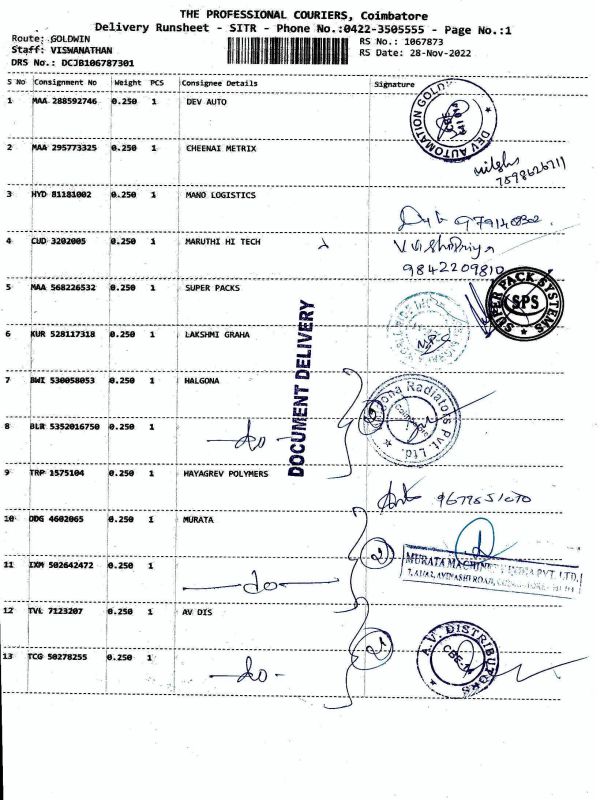 THE PROFESSIONAL COURIERS, Coimbatore
Delivery Runsheet - SITR - Phone No.:0422-3505555 - Page No.:1
Route: GOLDWIN
RS No.: 1067873
Staff: VISWANATHAN
RS Date: 28-Nov-2022
DRS No.: DCJB106787301
S No Consignment No Weight PCS Consignee Details Signature
1 MAA 288592746 0.250 1 DEV AUTO
DEV AUTOMATION GOLD
2 MAA 295773325 0.250 1 CHEENAI METRIX
7598626711
3 HYD 81181002 0.250 1 MANO LOGISTICS
4 CUD 3202005 0.250 1 MARUTHI HI TECH
V.Vishnupriya
9842209810
5 MAA 568226532 0.250 1 SUPER PACKS
SUPER PACK SYSTEMS
SPS
DOCUMENT DELIVERY
6 KUR 528117318 0.250 1 LAKSHMI GRAHA
7 BWI 530058053 0.250 1 HALGONA
Radiators Pvt. Ltd.
8 BLR 5352016750 0.250 1 -do-
2
9 TRP 1575104 0.250 1 HAYAGREV POLYMERS
10 DDG 4602065 0.250 1 MURATA
2
11 IXM 502642472 0.250 1 -do-
MURATA MACHINERY INDIA PVT. LTD.
AVINASHI ROAD,
12 TVL 7123207 0.250 1 AV DIS
2
A.V. DISTRIBUTORS
CBE-14
13 TCG 50278255 0.250 1 -do-